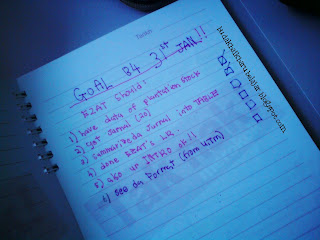 GOAL B4 31st JAN!!
#ZAT should:
1) have data of plantation stock
2) got Jurnal (20)
3) summarize da Jurnal into TABLE
4) done #ZAT's LR
5) also up INTRO ok!!
6) see da Format (from UiTM)